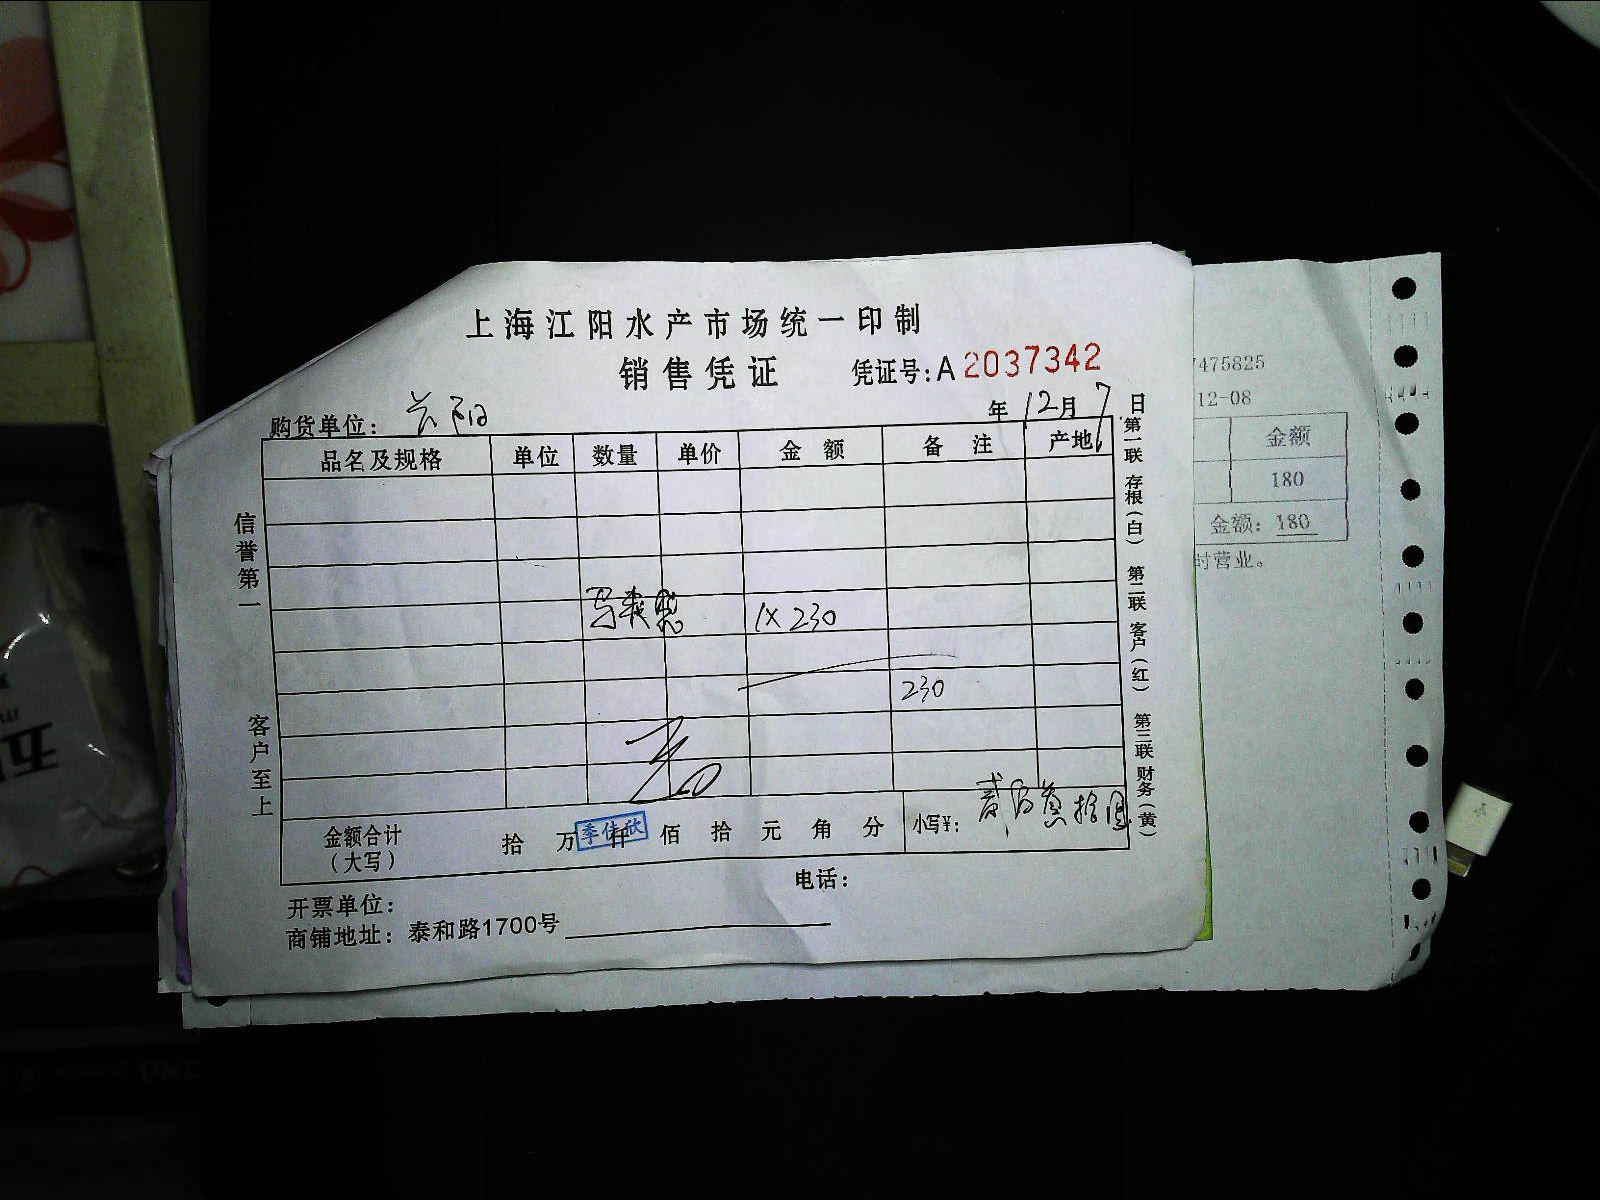 上海江阳水产市场统一印制
销售凭证 凭证号:A 2037342
购货单位:
年 12月 7 日
品名及规格 单位 数量 单价 金额 备注 产地
1X 230
230
金额合计(大写) 拾 万 仟 佰 拾 元 角 分 小写¥: 贰佰叁拾圆
季佳欣
电话:
开票单位:
商铺地址: 泰和路1700号
信誉第一
客户至上
第一联 存根(白) 第二联 客户(红) 第三联 财务(黄)
7475825
12-08
金额
180
金额: 180
时营业。